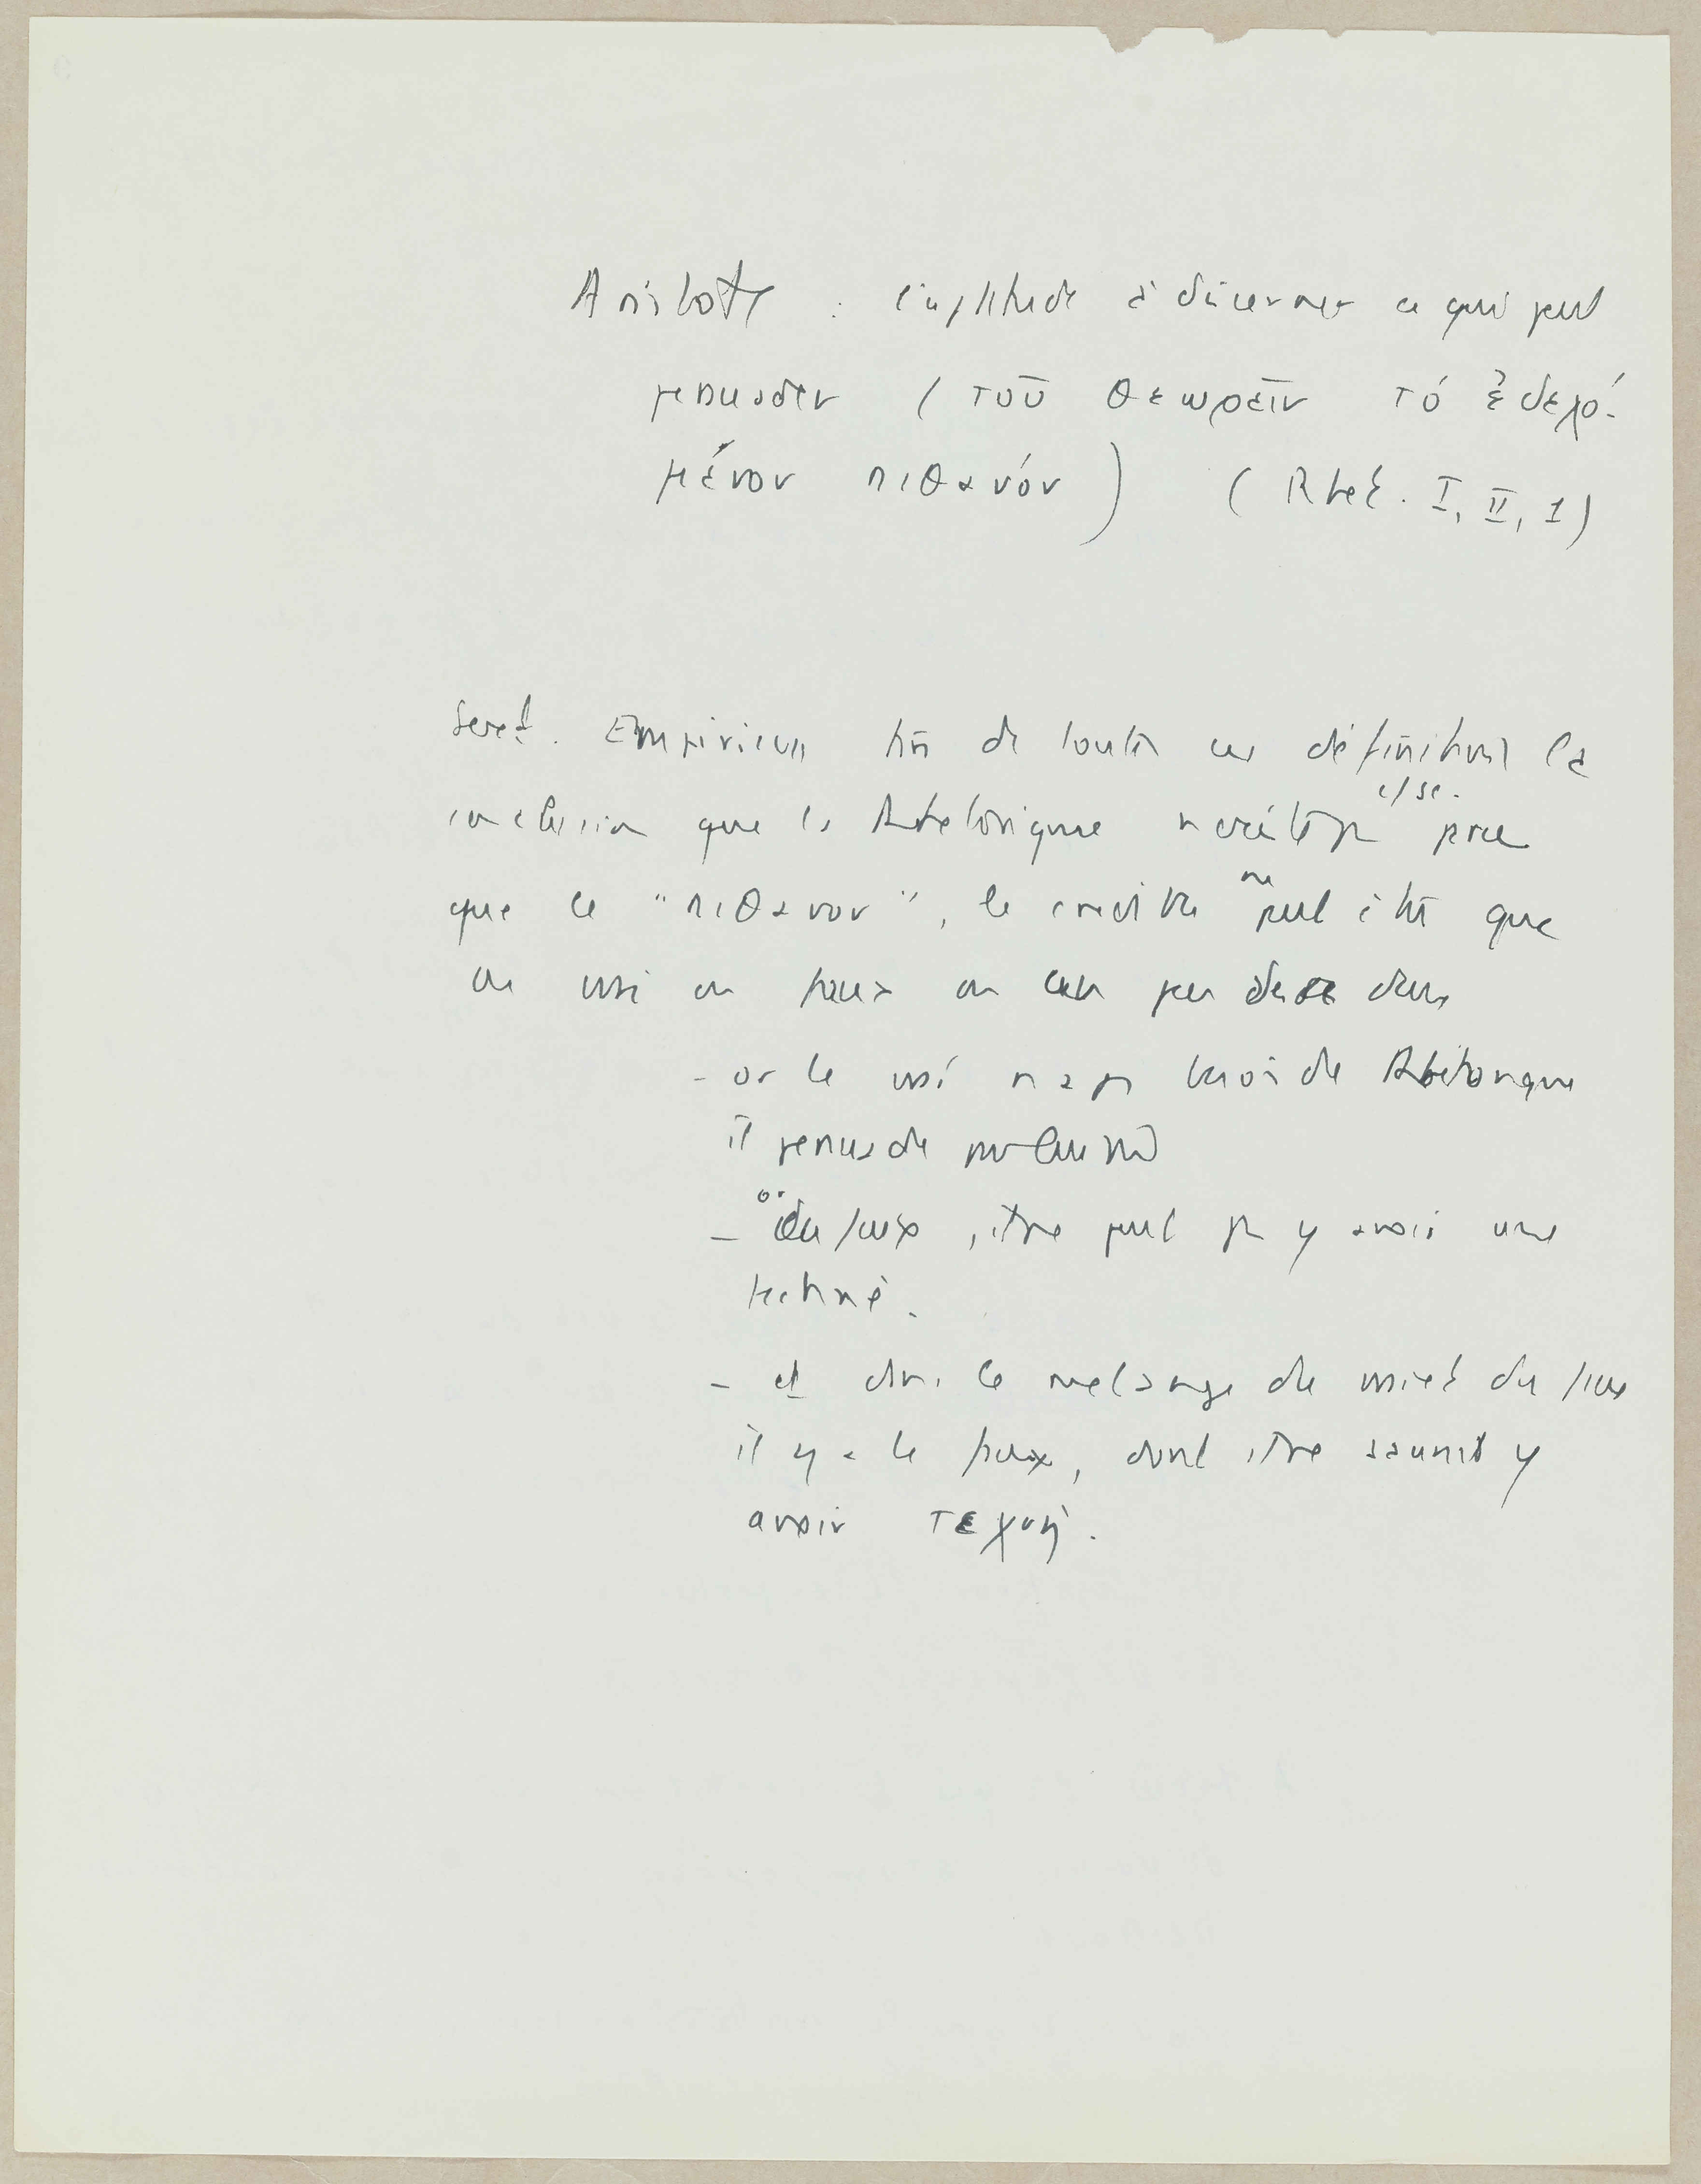 Aristote : l'aptitude à discerner ce qui peut
persuader ( τοῦ θεωρεῖν τό ἐδεχό-
μένον πιθανόν ) ( Rhet. I, II, 1)
Sext. Empiricus tire de toutes ces définitions la
conclusion que la Rhétorique n'existe pas parce
que le "πιθανον", le crédible ne peut être que
du vrai ou faux ou un peu des deux
- or le vrai n'a pas besoin de Rhétorique
il persuade par lui même
- or du faux, il ne peut pas y avoir une
technè.
- et dans le mélange du vrai et du faux
il y a le faux, dont il ne saurait y
avoir τεχνή.